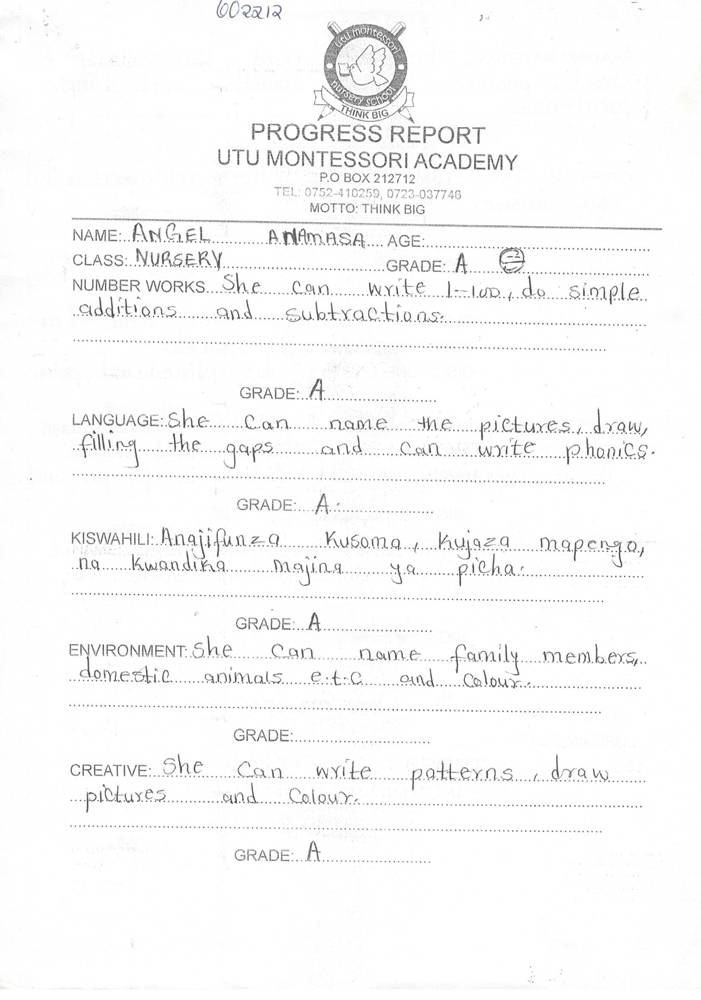 602212
utu montessori
nursery school
THINK BIG
PROGRESS REPORT
UTU MONTESSORI ACADEMY
P.O BOX 212712
TEL: 0752-410259, 0723-037746
MOTTO: THINK BIG
NAME: ANGEL ANAMASA AGE:
CLASS: NURSERY GRADE: A
NUMBER WORKS She can write 1-100, do simple
additions and subtractions.
GRADE: A
LANGUAGE: She can name the pictures, draw,
filling the gaps and can write phonics.
GRADE: A.
KISWAHILI: Anajifunza Kusoma, Kujaza mapengo,
na Kwandika majina ya picha.
GRADE: A
ENVIRONMENT: She can name family members,
domestic animals e.t.c and colour.
GRADE:
CREATIVE: She can write patterns, draw
pictures and colour.
GRADE: A